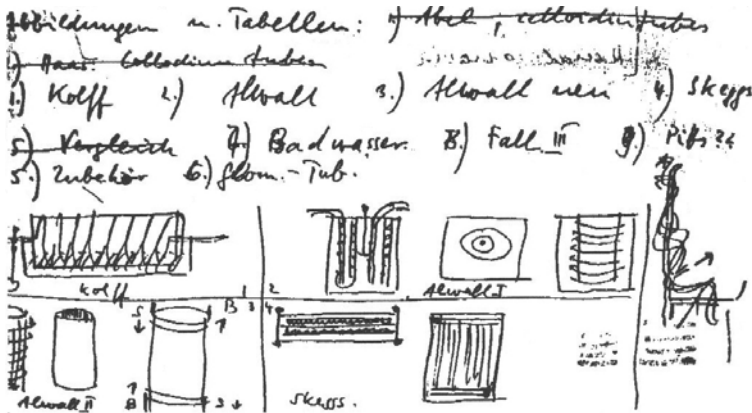 Abbildungen u. Tabellen: 1) Abel, celloidintubes
) Haas. Collodium tuben
1.) Kolff 2.) Alwall 3.) Alwall neu 4.) Skeggs
5) Vergleich 7.) Badwasser. 8.) Fall III 9.)
5.) Zubehör 6.) glom.-Tub.
Kolff 1 2 Alwall I
S B 3 4
Alwall II B S Skeggs.